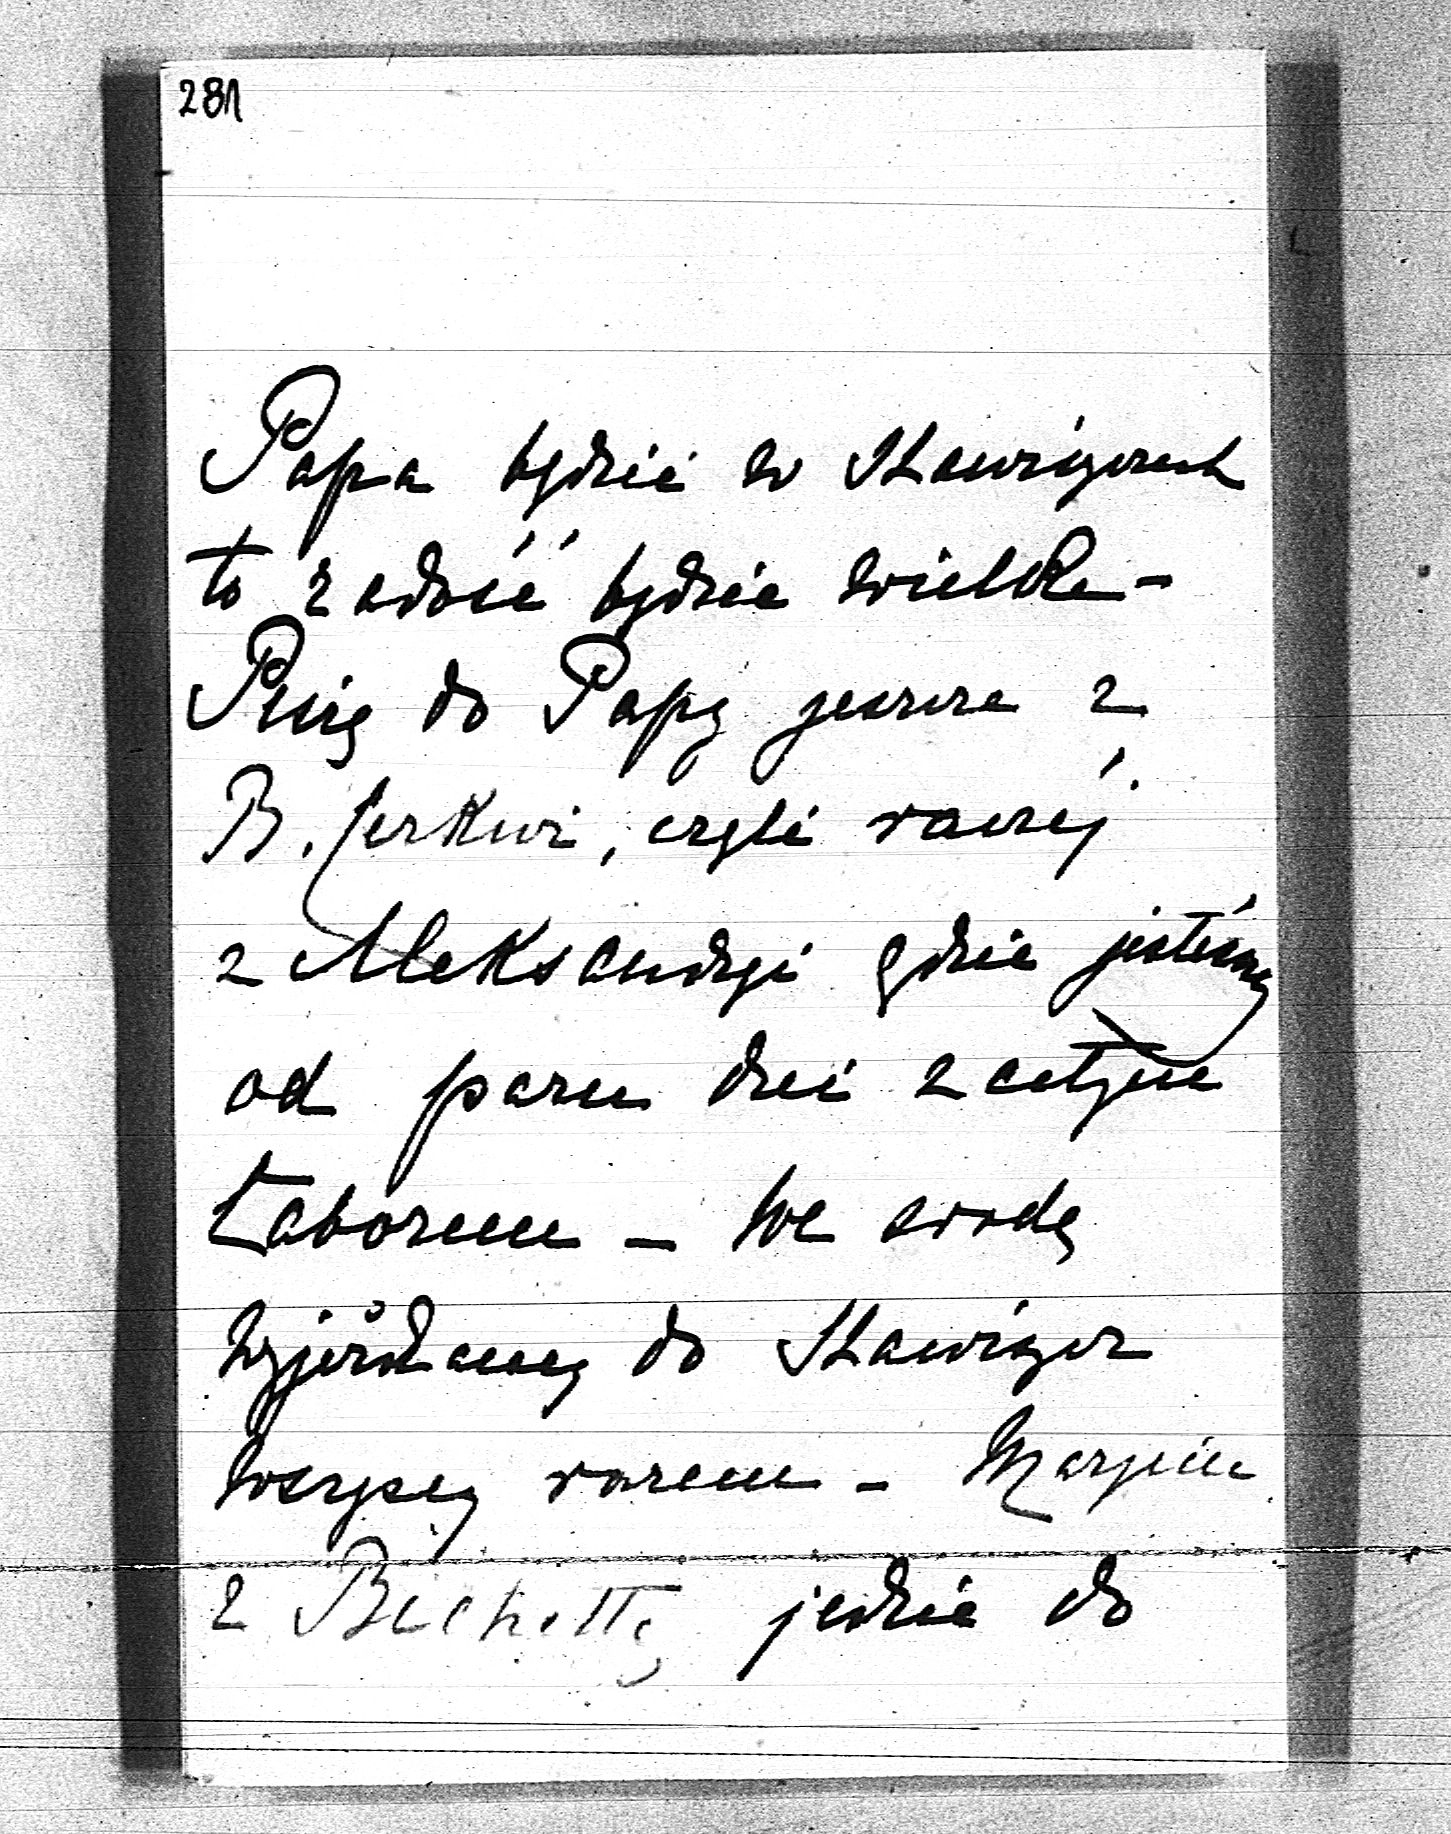 281
Papa będzie w Stawiszczach
to radość będzie wielka -
Piszę do Papy jeszcze z
B. Cerkwi, czyli raczéj
z Aleksandryi gdzie jesteśmy
od paru dni z całym
taborem - We środę
wyjeżdżamy do Stawiszcz
wszyscy razem - Marynia
z Bichettą jedzie do